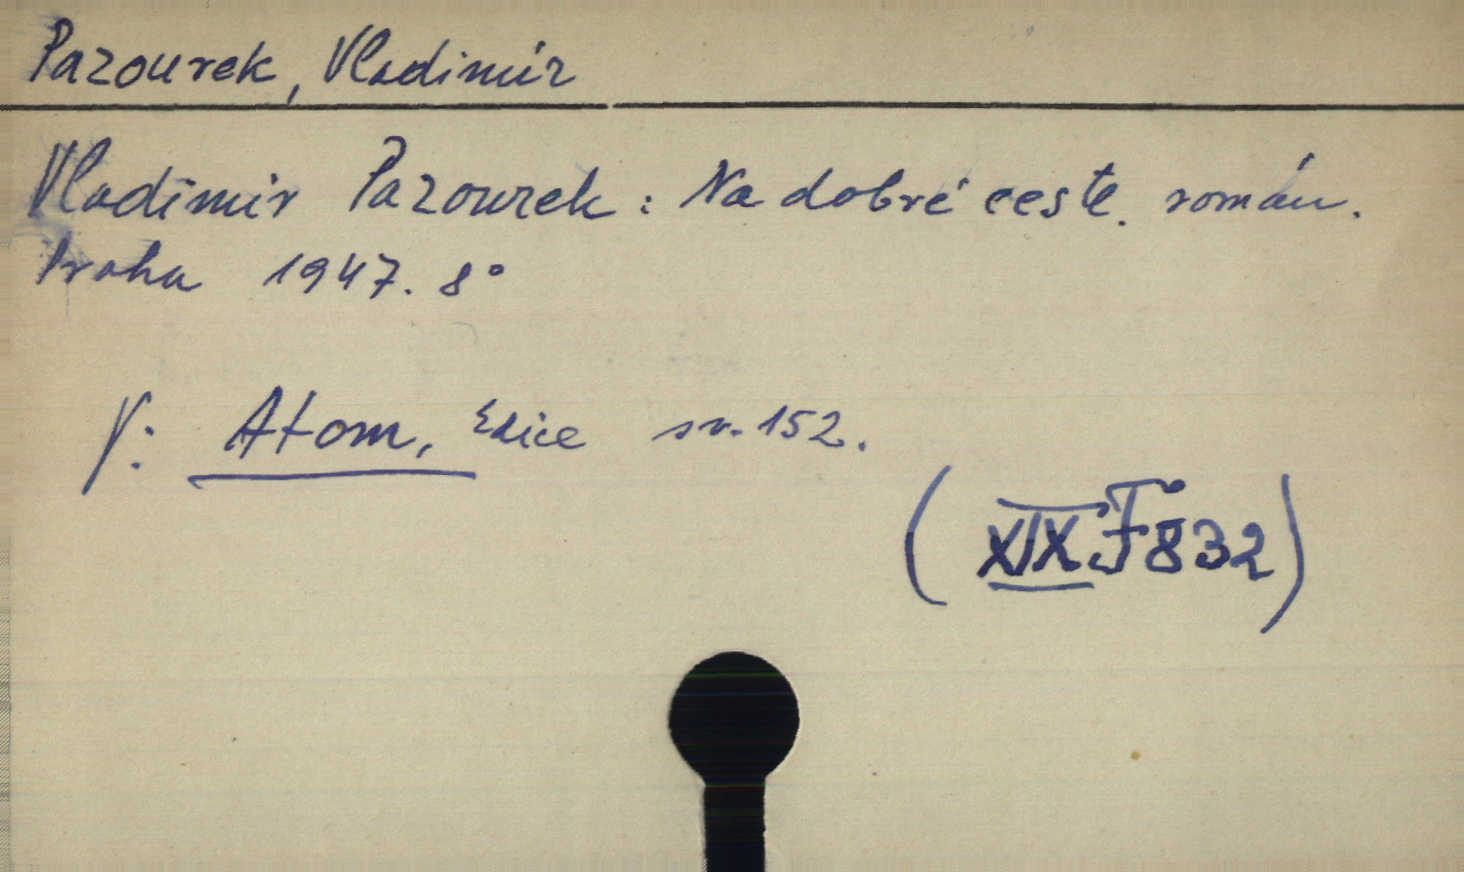 Pazourek, Vladimír
Vladimír Pazourek: Na dobré cestě. román.
Praha 1947. 8°
V: Atom, Edice sv. 152.
(XIX F 832)